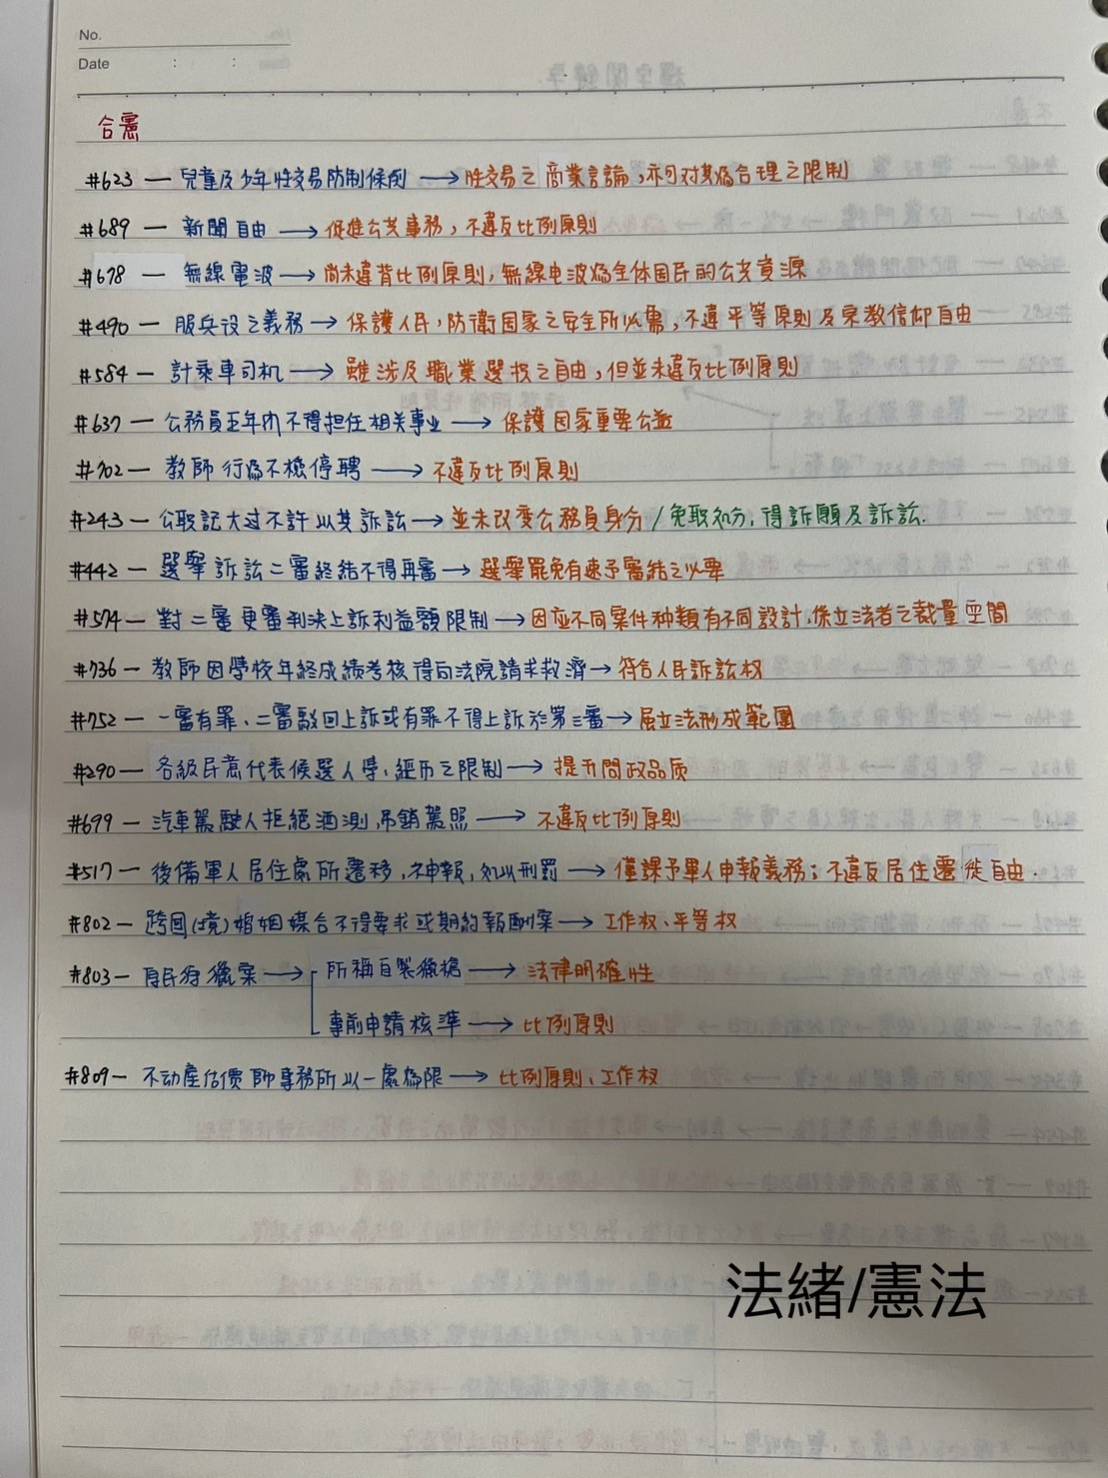 No.
Date : :
合憲
#623 — 兒童及少年性交易防制條例 → 性交易之商業言論，亦可對其為合理之限制
#689 — 新聞自由 → 促進公共事務，不違反比例原則
#678 — 無線電波 → 尚未違背比例原則，無線电波為全体国民的公共資源
#490 — 服兵役之義務 → 保護人民，防衛国家之安全所必需，不違平等原則及宗教信仰自由
#584 — 計乘車司机 → 雖涉及職業選択之自由，但並未違反比例原則
#637 — 公務員三年內不得担任相关事业 → 保護国家重要公益
#702 — 教師行為不檢停聘 → 不違反比例原則
#243 — 公職記大过不許以其訴訟 → 並未改變公務員身分/免職処分，得訴願及訴訟.
#442 — 選舉訴訟二審終結不得再審 → 選舉罷免有速予審結之必要
#574 — 對二審更審判決上訴利益額限制 → 因應不同案件种類有不同設計，係立法者之裁量空間
#736 — 教師因學校年終成績考核得向法院請求救濟 → 符合人民訴訟权
#752 — 一審有罪、二審駁回上訴或有罪不得上訴於第三審 → 屬立法形成範圍
#290 — 各級民意代表候選人學、經歷之限制 → 提升問政品质
#699 — 汽車駕駛人拒絕酒測，吊銷駕照 → 不違反比例原則
#517 — 後備軍人居住處所遷移，不申報，処以刑罰 → 僅課予單人申報義務；不違反居住遷徙自由.
#802 — 跨国(境)婚姻媒合不得要求或期約報酬案 → 工作权、平等权
#803 — 原民狩獵案 → 所稱自製獵槍 → 法律明確性
事前申請核準 → 比例原則
#809 — 不动產估價師事務所以一處為限 → 比例原則、工作权
法緒/憲法